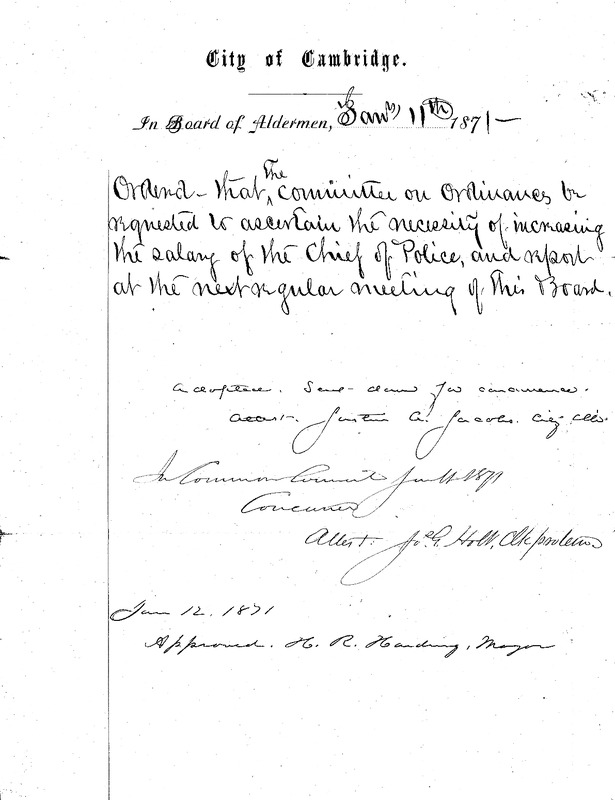 City of Cambridge.
In Board of Aldermen, Jany 11th 1871—
Ordered – that The committee on Ordinances be
requested to ascertain the necessity of increasing
the salary of the Chief of Police, and report
at the next regular meeting of this Board.
Adopted. Sent down for concurrence.
Attest. Justin A. Jacobs. City Clk.
In Common Council Jan 11 1871
Concurred
Attest. Jos. G. Holt, Clk protem
Jan 12. 1871
Approved. H. R. Harding, Mayor